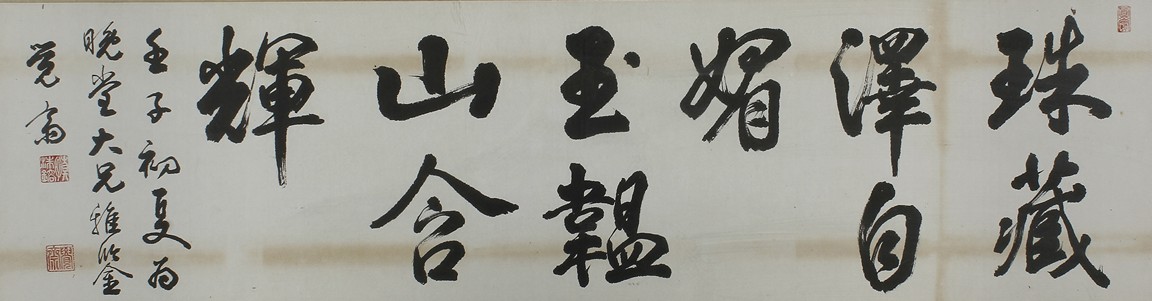 珠藏
澤自
媚
玉韞
山含
輝
壬子初夏为
晚堂大兄雅鉴
覺齋